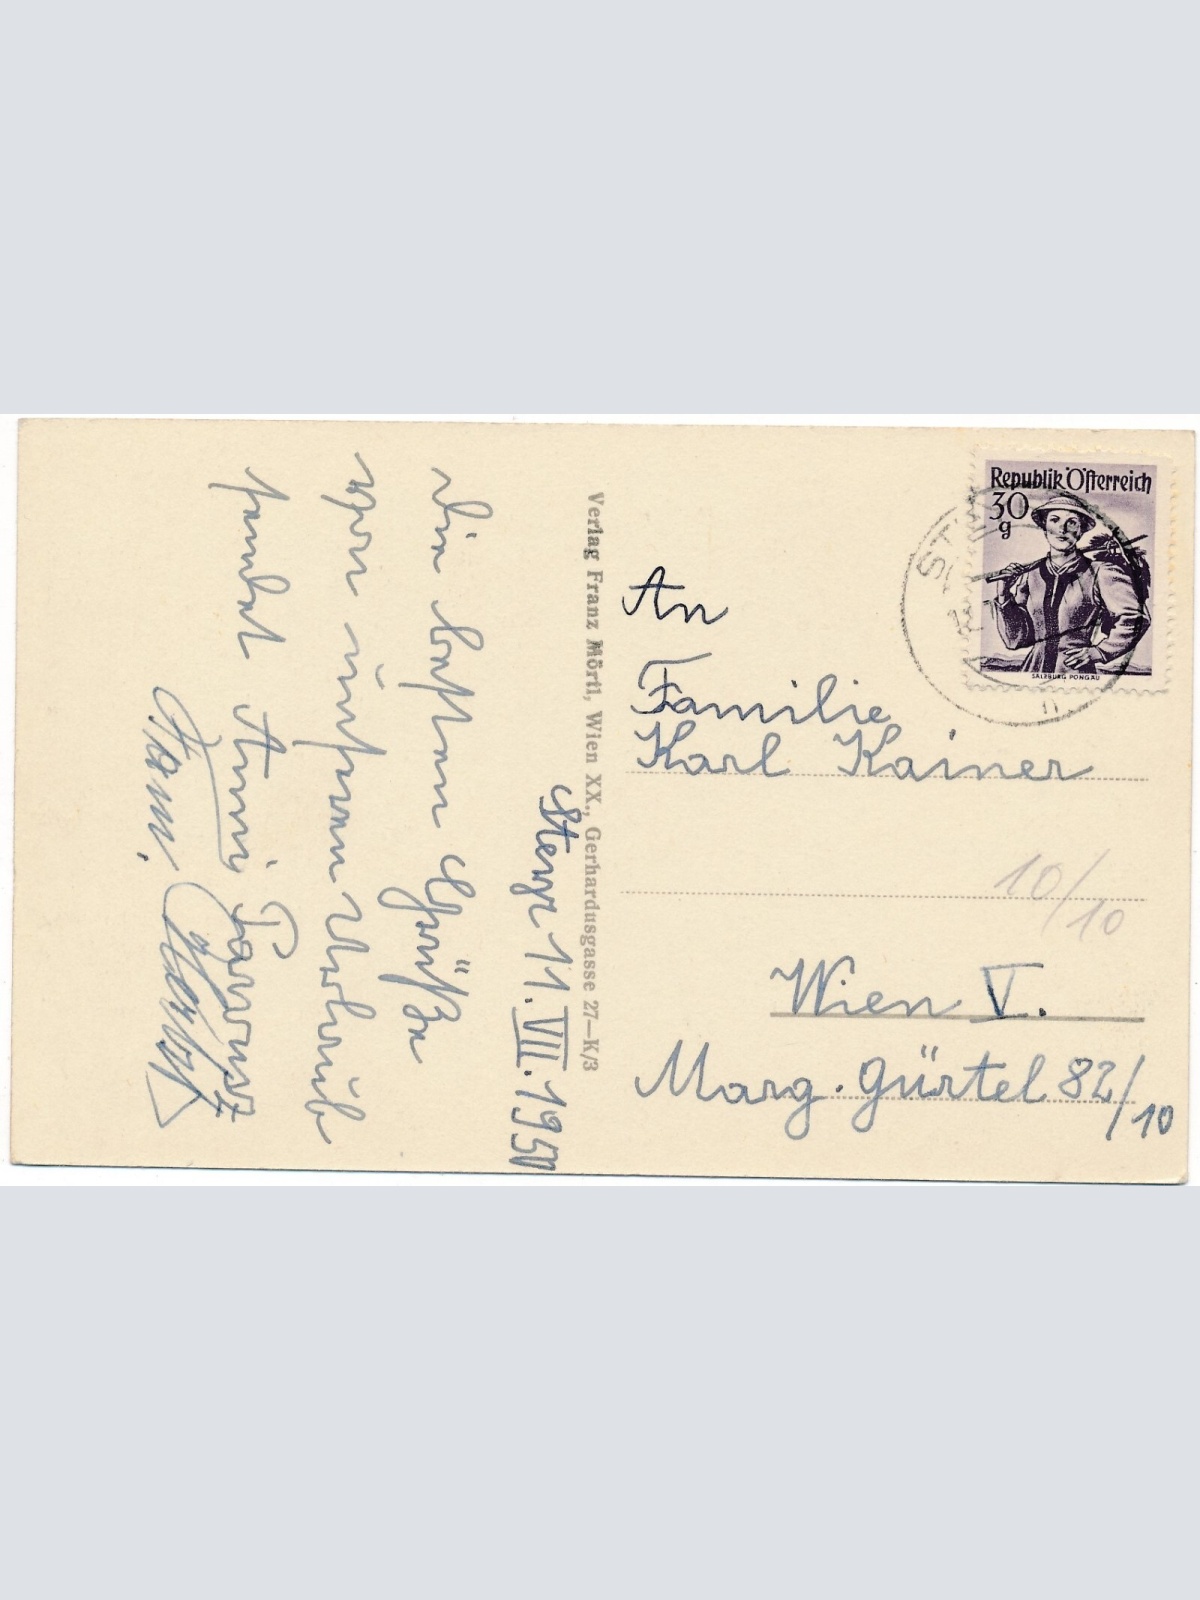 Steyr 11.VII.1950
Die besten Grüße
von unsren Urlaub
sendet Anni
Fam.
Verlag Franz Mörtl, Wien XX., Gerhardusgasse 27—K/3
Republik Österreich
30
g
SALZBURG PONGAU
An
Familie
Karl Kainer
10/10
Wien V.
Marg. Gürtel 82/10